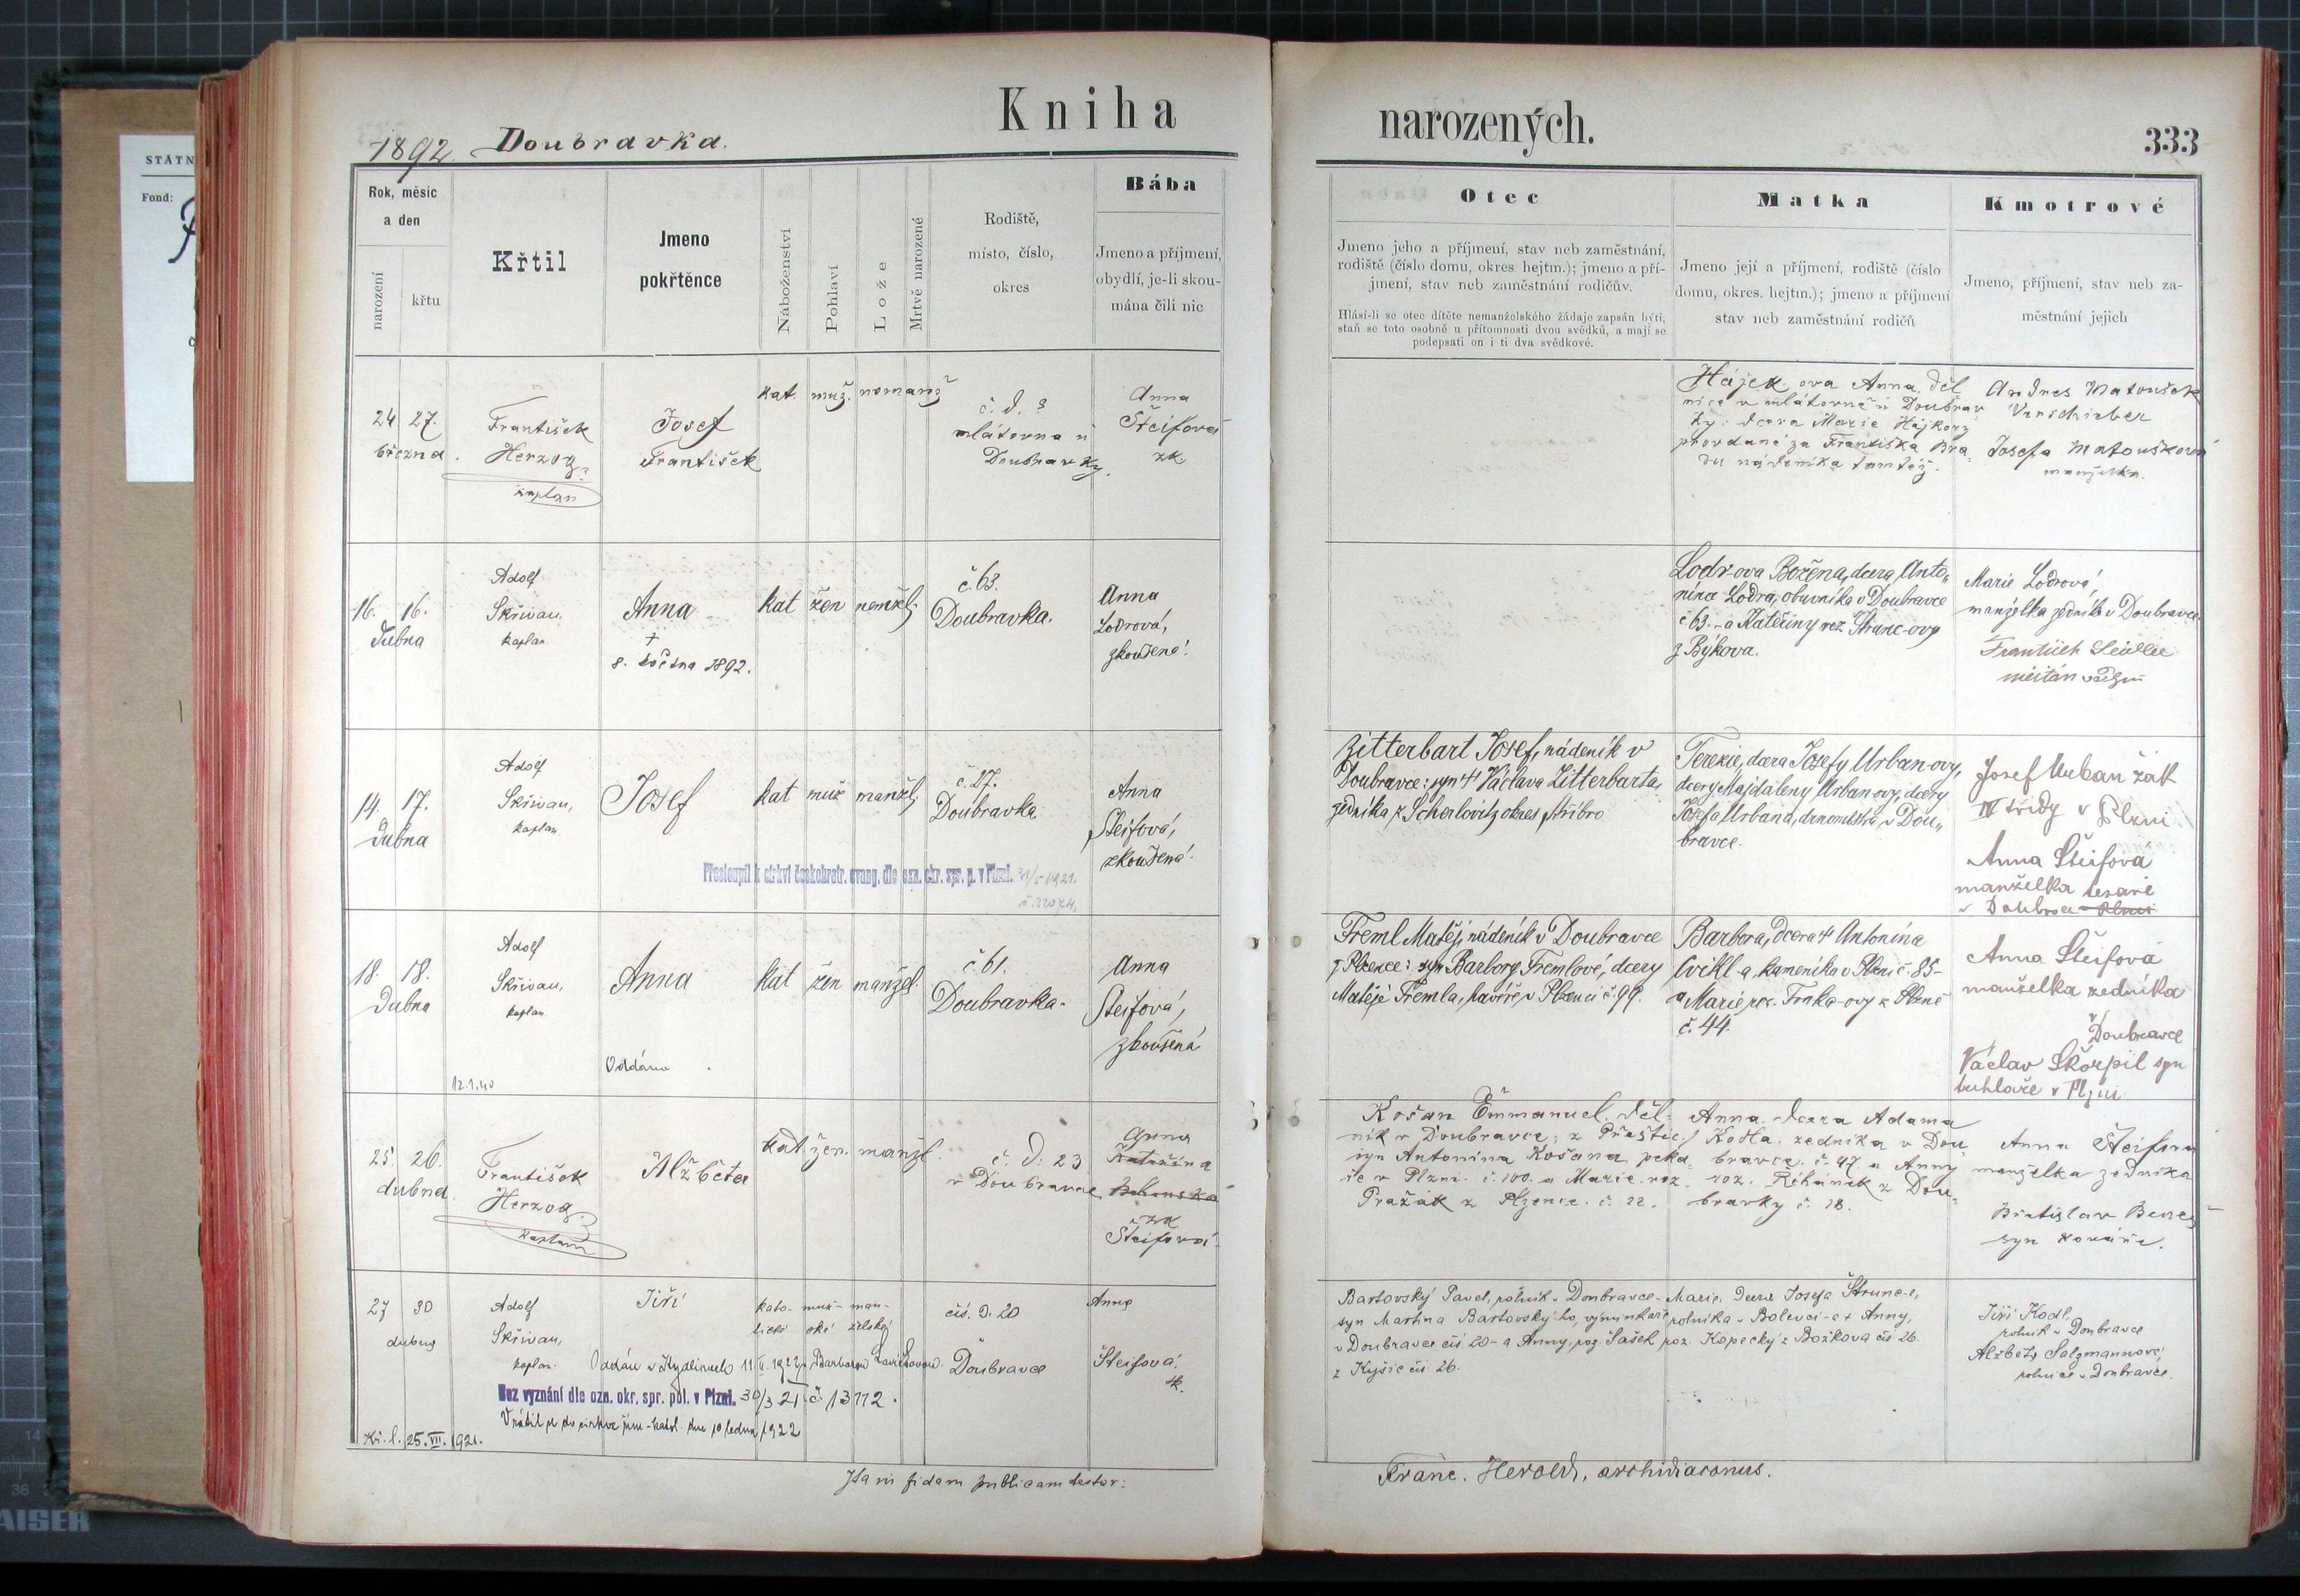 Kniha
narozených.
333
1892. Doubravka.
STÁTN
Fond:
Rok, měsíc
a den
narození
křtu
Křtil
Jmeno
pokřtěnce
Náboženství
Pohlaví
Lože
Mrtvě narozené
Rodiště,
místo, číslo,
okres
Bába
Jmeno a příjmení,
obydlí, je-li skou-
mána čili nic
Otec
Jmeno jeho a příjmení, stav neb zaměstnání,
rodiště (číslo domu, okres hejtm.); jmeno a pří-
jmení, stav neb zaměstnání rodičův.
Hlásí-li se otec dítěte nemanželského žádaje zapsán býti,
staň se toto osobně u přítomnosti dvou svědků, a mají se
podepsati on i ti dva svědkové.
Matka
Jmeno její a příjmení, rodiště (číslo
domu, okres. hejtm.); jmeno a příjmení
stav neb zaměstnání rodičů
Kmotrové
Jmeno, příjmení, stav neb za-
městnání jejich
24. 27.
března.
František
Herzog
kaplan
Josef
František
kat. muž. nemanž
č. d. 3
mlátovna u
Doubravky.
Anna
Šteifová
zk.
Hájek ova Anna, děl
nice v mlátovně u Doubrav
ky: dcera Marie Hájkovy
provdané za Františka Bra
du nádeníka tamtéž.
Andres Matoušek
Josefa Matoušková
manželka.
16. 16.
Dubna
Adolf
Skřivan,
kaplan.
Anna
†
8. 1892.
kat žen nemžl.
č. 63.
Doubravka.
Anna
Lodrová,
zkoušená.
Lodr-ova Božena, dcera Anto-
nína Lodra, obuvníka v Doubravce
č 63. - a Kateřiny roz Stranc-ovy
z Býkova.
Marie Lodrová,
manželka zedníka v Doubravce.
František
14. 17.
Dubna
Adolf
Skřivan,
kaplan.
Josef
kat muž manžl.
č. 27.
Doubravka
Anna
Šteifová,
zkoušená.
Přestoupil k církvi českobratr. evang. dle ozn. okr. spr. p. v Plzni. 31/5 1921.
č. 22074.
Zitterbart Josef, nádeník v
Doubravce: syn † Václava Zitterbarta,
zedníka z Scherlovitz okres Stříbro
Terezie, dcera Josefy Urban-ovy,
dcery Majdaleny Urbanovy, dcery
Josefa Urbana, v Dou-
bravce.
Josef Urban žák
IV třídy v Plzni
Anna Šteifová
manželka tesaře
v Doubrav Plzni
18. 18.
Dubna
Adolf
Skřivan,
kaplan.
Anna
Oddána
12.1.40
kat žen manžel.
č. 61.
Doubravka.
Anna
Šteifová,
zkoušená
Treml Matěj, nádeník v Doubravce
z Plzence: syn Barbory Tremlové, dcery
Matěje Tremla, havíře v Plzenci č. 99.
Barbora, dcera † Antonína
Cvikl-a, kameníka v Plzni č. 85-
a Marie roz. Trnka-ovy z Plzně
č. 44.
Anna Šteifová
manželka zedníka
v Doubravce
Václav Škorpil syn
truhlaře v Plzni
25. 26.
dubna.
František
Herzog
kaplan
Alžběta
kat. žen. manžl.
č. d. 23
v Doubravce
Anna
Kateřina
zk
Šteifová.
Košan Emmanuel. děl-
ník v Doubravce; z Přeštic;
syn Antonína Košana peka-
ře v Plzni. č. 100. a Marie roz.
Pražák z Plzence. č. 22.
Anna dcera Adama
Kotla. zedníka v Dou
bravce. č. 47. a Anny
roz. Řihánek z Dou-
bravky č. 18.
Anna Šteifová
manželka zedníka
Břetislav Beneš
syn kováře.
27 30
dubna
Adolf
Skřivan,
kaplan.
Jiří
kato- muž- man-
lické ské želské
čís. d. 20
Doubravce
Anna
Šteifová.
zk.
Oddán v 11. 1923 s Barborou
Bez vyznání dle ozn. okr. spr. pol. v Plzni. 30/3 21 č. 13712.
Vrátil se do církve řím.-katol. dne 10 ledna 1922
Kř. l. 25. VII. 1921.
Bartovský Pavel, rolník v Doubravce
syn Martina Bartovský-ho, výminkaře
v Doubravce čís 20 - a Anny, roz Šašek
z Kyšic čís 26.
Marie, dcera Josefa Strunc-e,
rolníka v Bolevci - a † Anny,
roz. Kopecký z Božkova čís 26.
Jiří Kodl,
rolník v Doubravce
Alžběta Salzmannová,
rolnice v Doubravce.
Ita in fidem publicam testor:
Franc. Herold, archidiaconus.